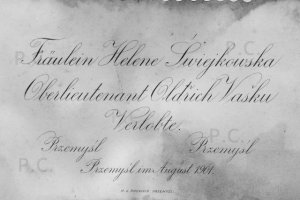 Fräulein Helene Świąjkowska
Oberlieutenant Oldřich Vašku
Verlobte.
Przemyśl Przemyśl
Przemyśl im August 1901.